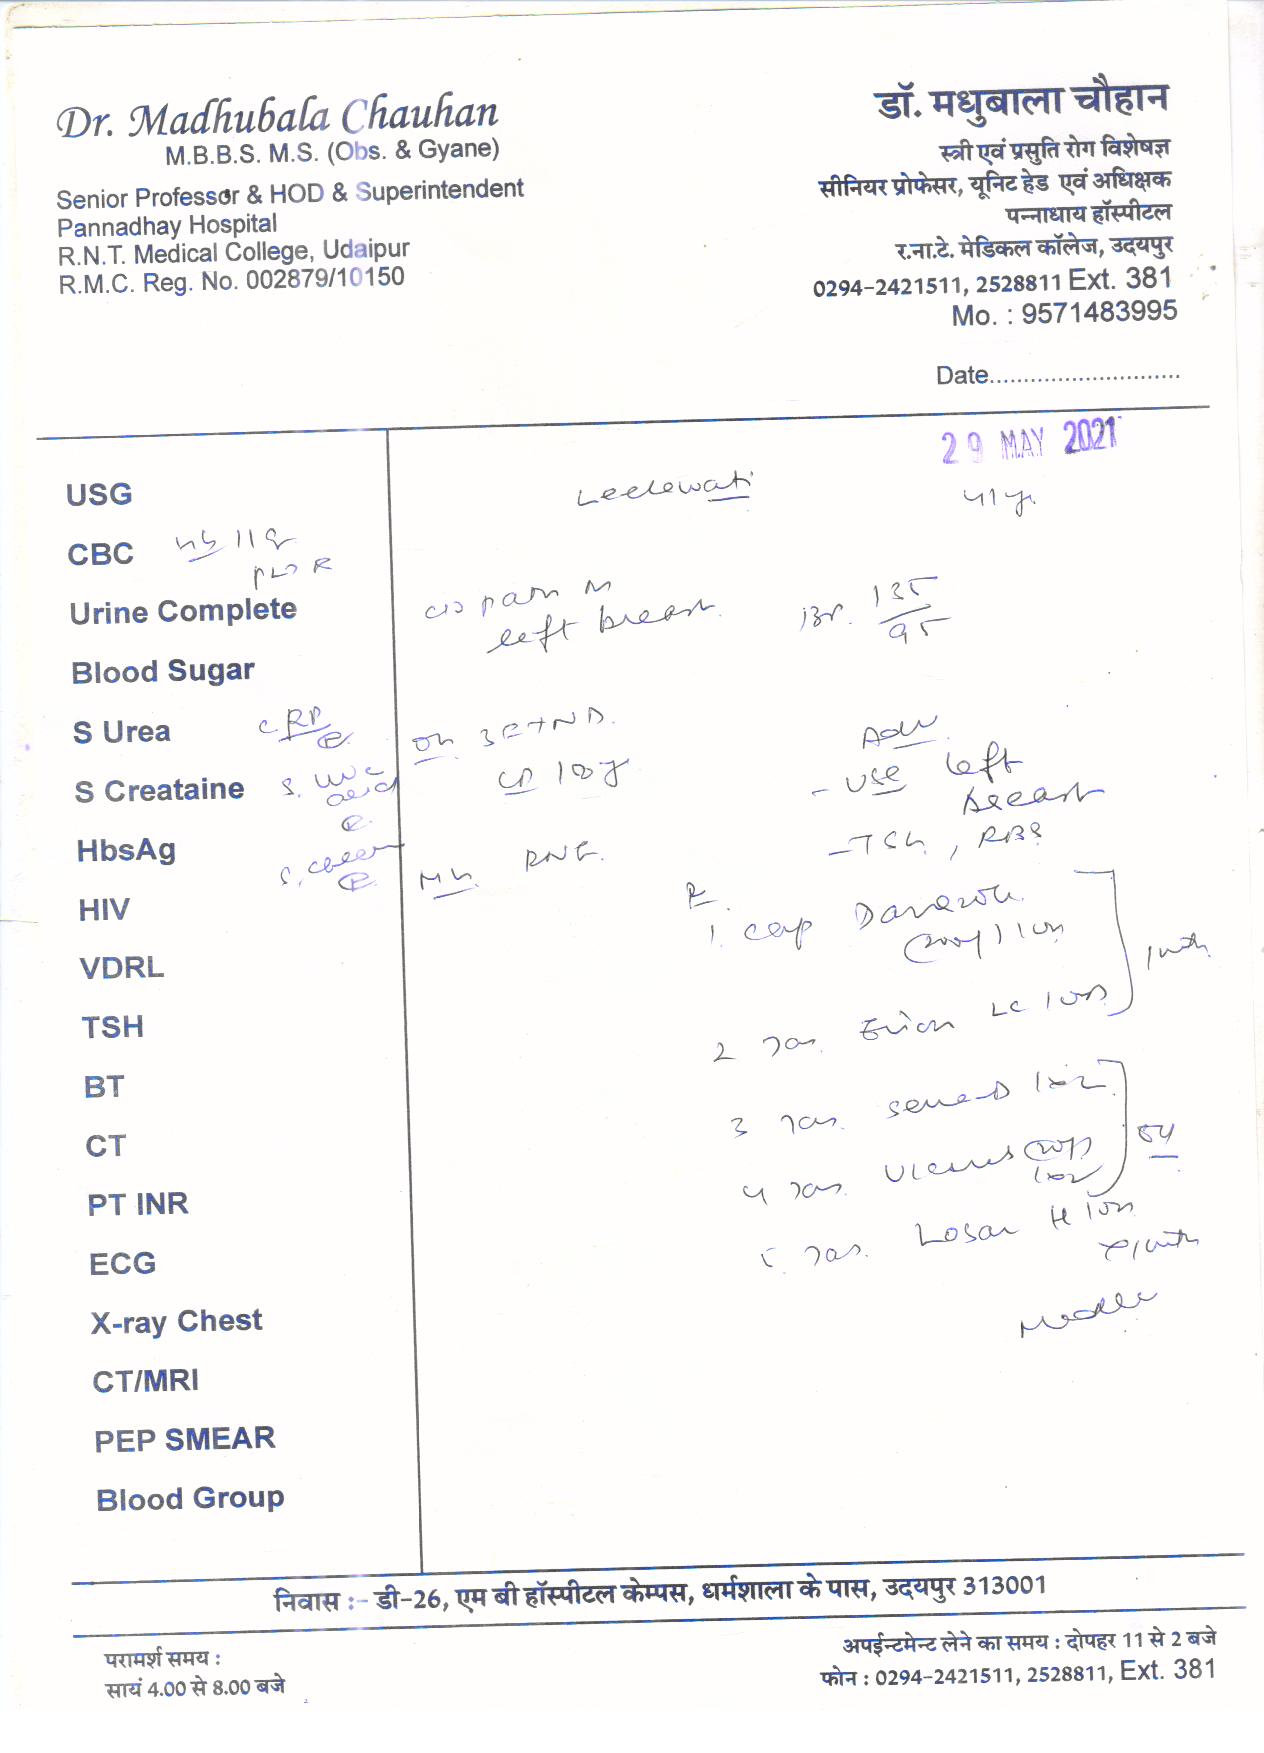 Dr. Madhubala Chauhan
M.B.B.S. M.S. (Obs. & Gyane)
Senior Professor & HOD & Superintendent
Pannadhay Hospital
R.N.T. Medical College, Udaipur
R.M.C. Reg. No. 002879/10150
डॉ. मधुबाला चौहान
स्त्री एवं प्रसुति रोग विशेषज्ञ
सीनियर प्रोफेसर, यूनिट हेड एवं अधिक्षक
पन्नाधाय हॉस्पीटल
र.ना.टे. मेडिकल कॉलेज, उदयपुर
0294-2421511, 2528811 Ext. 381
Mo. : 9571483995
Date............................
29 MAY 2021
USG
CBC
Urine Complete
Blood Sugar
S Urea
S Creataine
HbsAg
HIV
VDRL
TSH
BT
CT
PT INR
ECG
X-ray Chest
CT/MRI
PEP SMEAR
Blood Group
Leelewati 41 y.
Hb 11 g
c/o pain in
left breast
135
95
CRP
S. uric
acid
Adv
- USG left
breast
- TSH, RBS
1. cap
2 Tab. Evion LC 1 OD
3 Tab.
4 Tab.
5. Tab. Losar H 1 OD
निवास :- डी-26, एम बी हॉस्पीटल केम्पस, धर्मशाला के पास, उदयपुर 313001
परामर्श समय :
सायं 4.00 से 8.00 बजे
अपईन्टमेन्ट लेने का समय : दोपहर 11 से 2 बजे
फोन : 0294-2421511, 2528811, Ext. 381